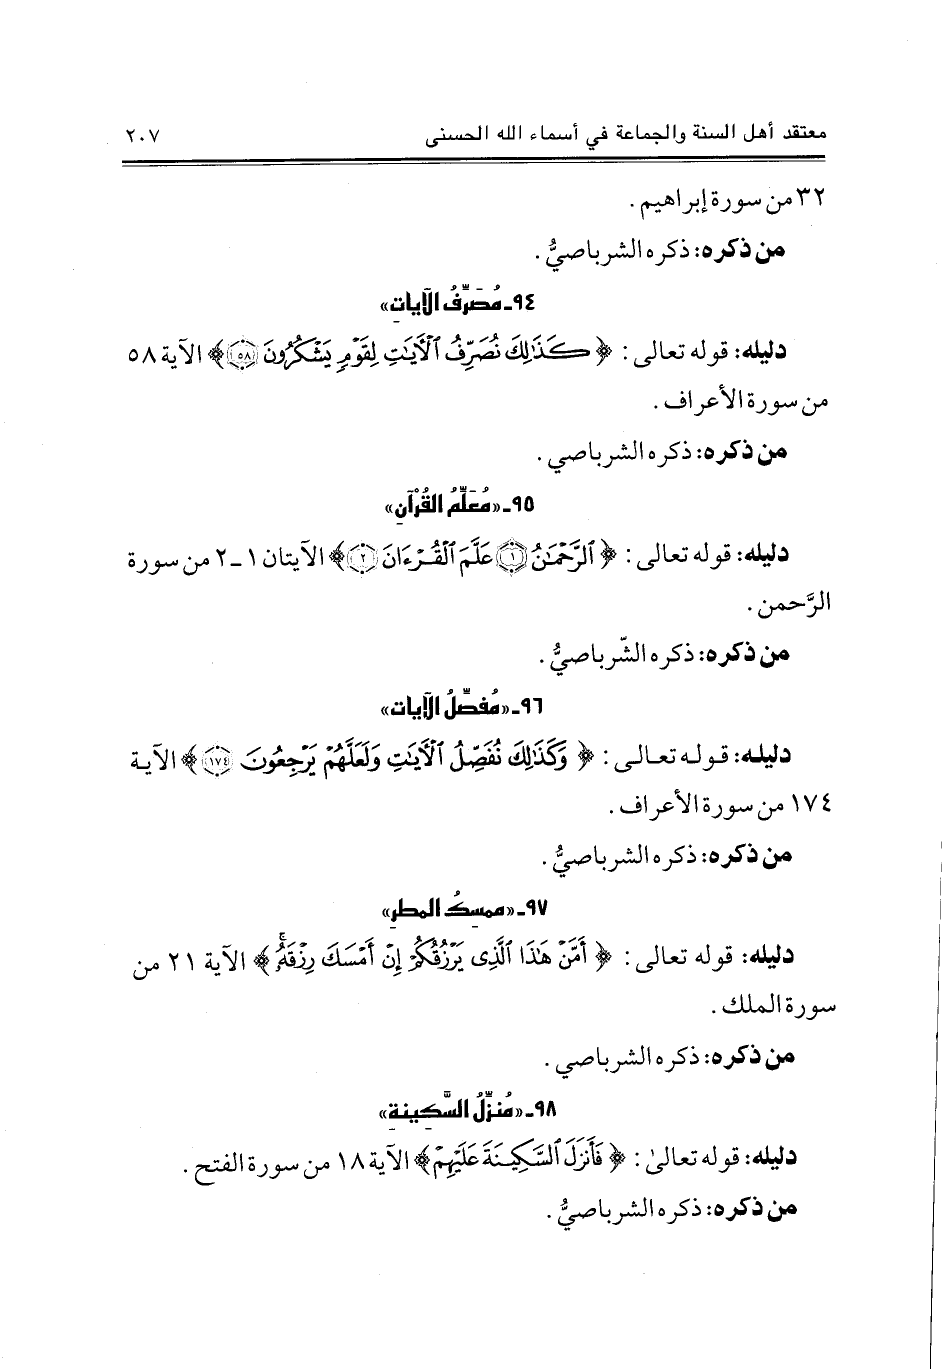 معتقد أهل السنة والجماعة في أسماء الله الحسنى ٢٠٧
٣٢ من سورة إبراهيم .
من ذكره: ذكره الشرباصيُّ .
٩٤ـ «مُصَرِّفُ الآياتِ»
دليله: قوله تعالى : ﴿ كَذَٰلِكَ نُصَرِّفُ ٱلْأَيَٰتِ لِقَوْمٍ يَشْكُرُونَ (٥٨) ﴾ الآية ٥٨
من سورة الأعراف .
من ذكره: ذكره الشرباصي .
٩٥ـ «مُعَلِّمُ القُرْآنِ»
دليله: قوله تعالى : ﴿ ٱلرَّحْمَٰنُ (١) عَلَّمَ ٱلْقُرْءَانَ (٢) ﴾ الآيتان ١ـ٢ من سورة
الرَّحمن .
من ذكره: ذكره الشّرباصيُّ .
٩٦ـ «مُفصِّلُ الآيات»
دليله: قوله تعالى : ﴿ وَكَذَٰلِكَ نُفَصِّلُ ٱلْأَيَٰتِ وَلَعَلَّهُمْ يَرْجِعُونَ (١٧٤) ﴾ الآية
١٧٤ من سورة الأعراف .
من ذكره: ذكره الشرباصيُّ .
٩٧ـ «ممسكُ المطرِ»
دليله: قوله تعالى : ﴿ أَمَّنْ هَٰذَا ٱلَّذِى يَرْزُقُكُمْ إِنْ أَمْسَكَ رِزْقَهُۥۚ ﴾ الآية ٢١ من
سورة الملك .
من ذكره: ذكره الشرباصي .
٩٨ـ «مُنزِّلُ السَّكِينةِ»
دليله: قوله تعالىٰ : ﴿ فَأَنزَلَ ٱلسَّكِينَةَ عَلَيْهِمْ ﴾ الآية ١٨ من سورة الفتح .
من ذكره: ذكره الشرباصيُّ .